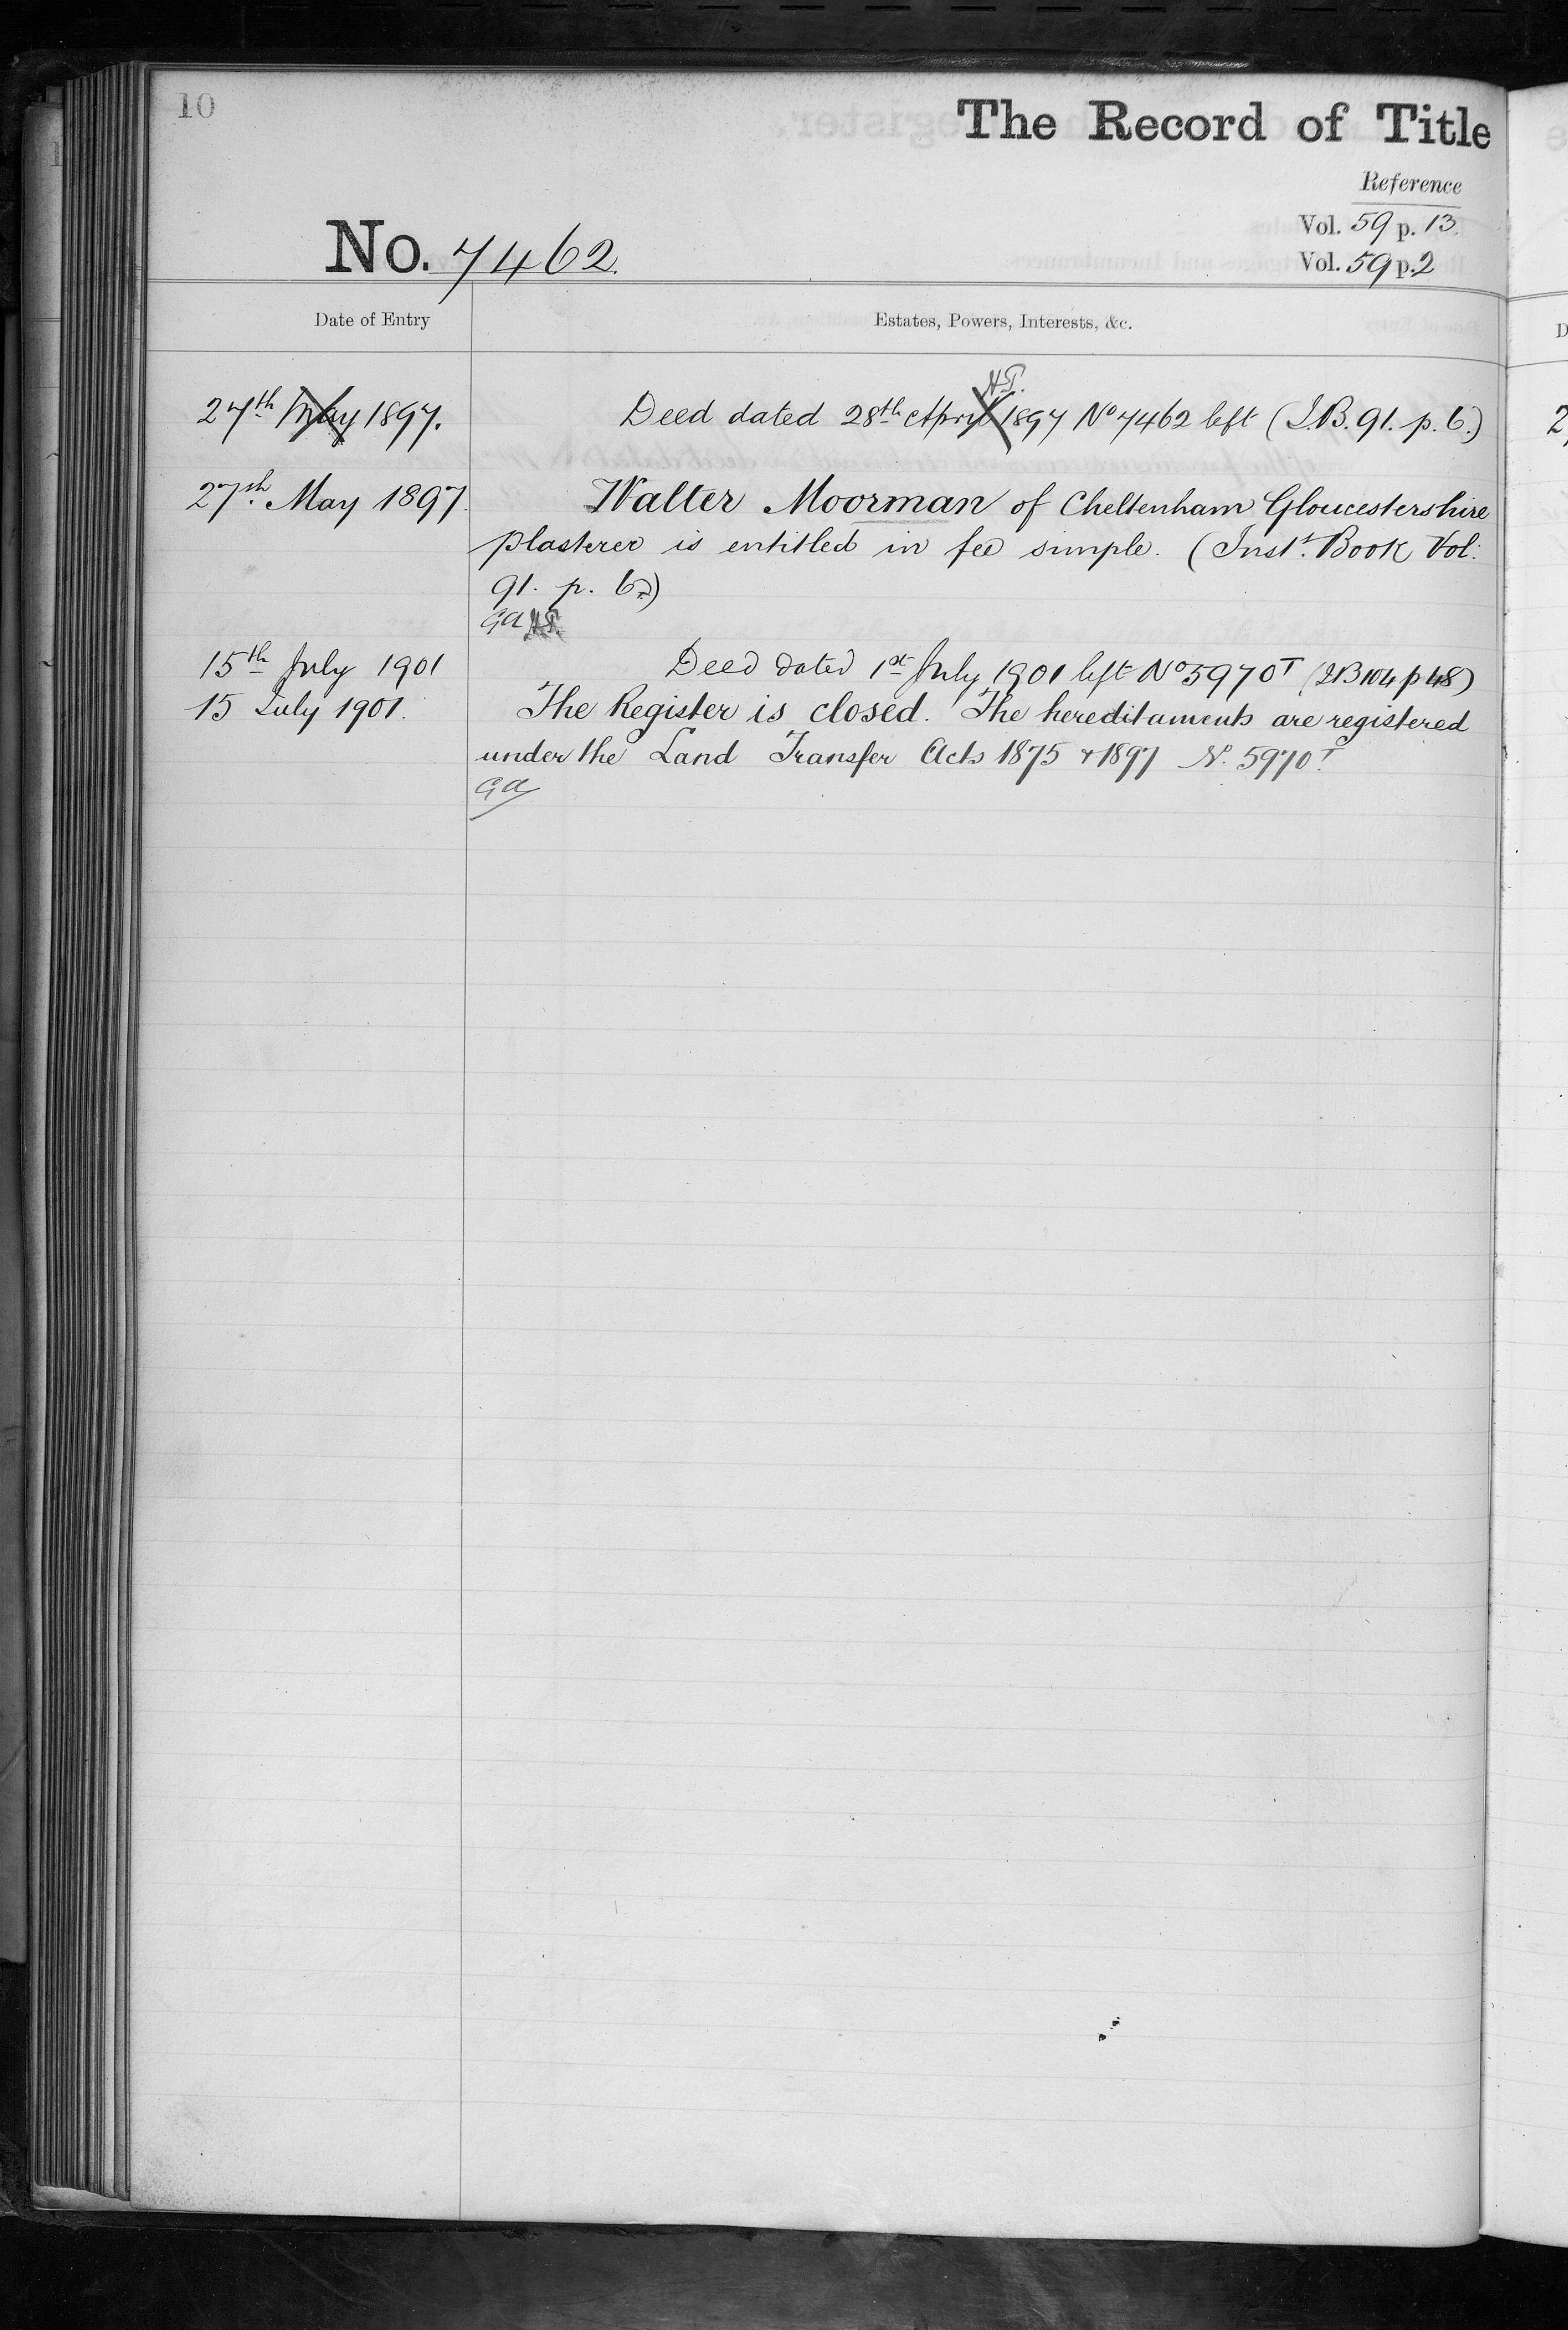 10
The Record of Title
Reference
Vol. 59 p. 13.
No. 7462.
Vol. 59 p. 2
Date of Entry
Estates, Powers, Interests, &c.
27th May 1897.
Deed dated 28th April 1897 No 7462 left (I.B. 91. p. 6.)
27th May 1897.
Walter Moorman of Cheltenham Gloucestershire
plasterer is entitled in fee simple. (Inst. Book Vol:
91. p. 6.)
GA
15th July 1901
Deed dated 1st July 1901 left No 5970T (IB 104 p 48)
15 July 1901.
The Register is closed. The hereditaments are registered
under the Land Transfer Acts 1875 & 1897 No. 5970T.
GA